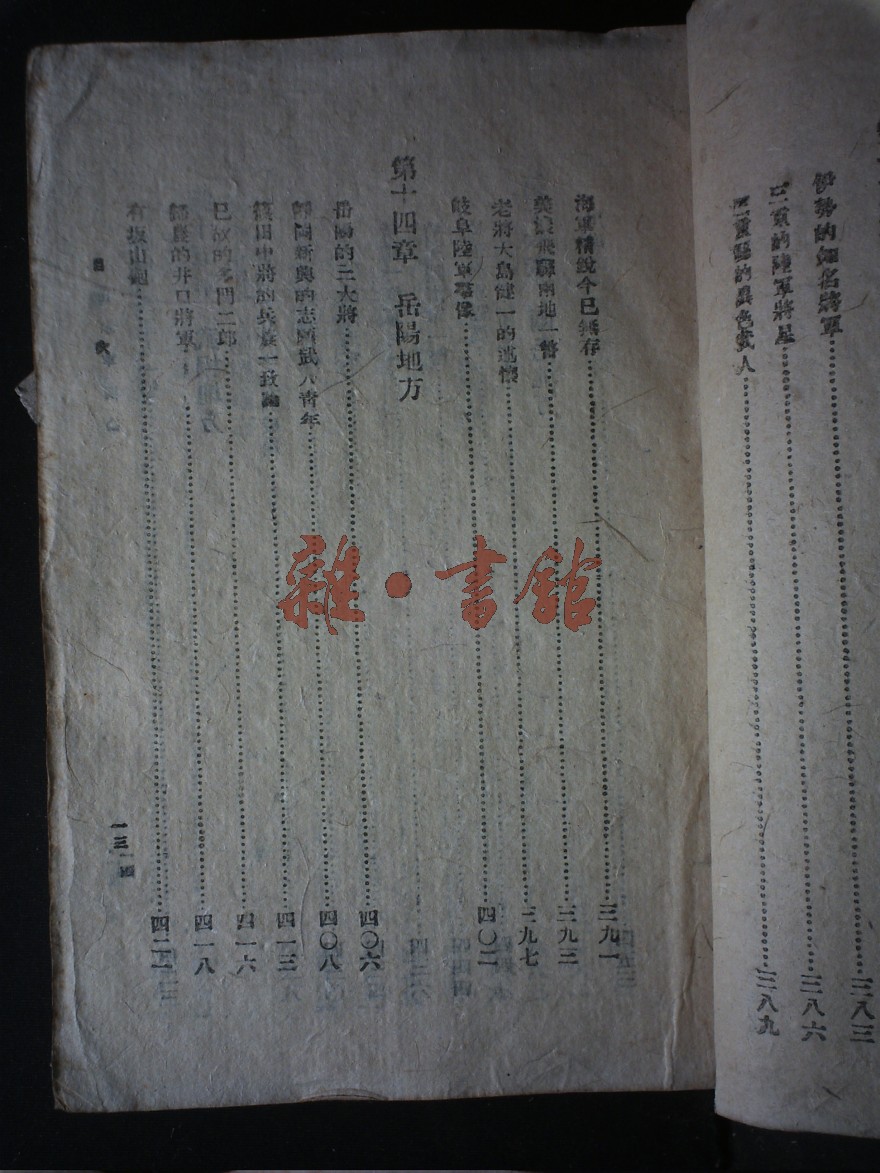 伊勢的知名將軍…………三八三
三重的陸軍將星…………三八六
三重縣的異色武人…………三八九
海軍精銳今已無存…………三九一
美濃飛驒兩地一瞥…………三九三
老將大島健一的述懷…………三九七
岐阜陸軍羣像…………四〇二
第十四章 岳陽地方
岳陽的三大將…………四〇六
靜岡新興的志願武人青年…………四〇八
中將的兵農一致論…………四一三
已故的多門二郎…………四一六
的井口將軍…………四一八
有坂山砲…………四二二
目 次
一三
雜·書館